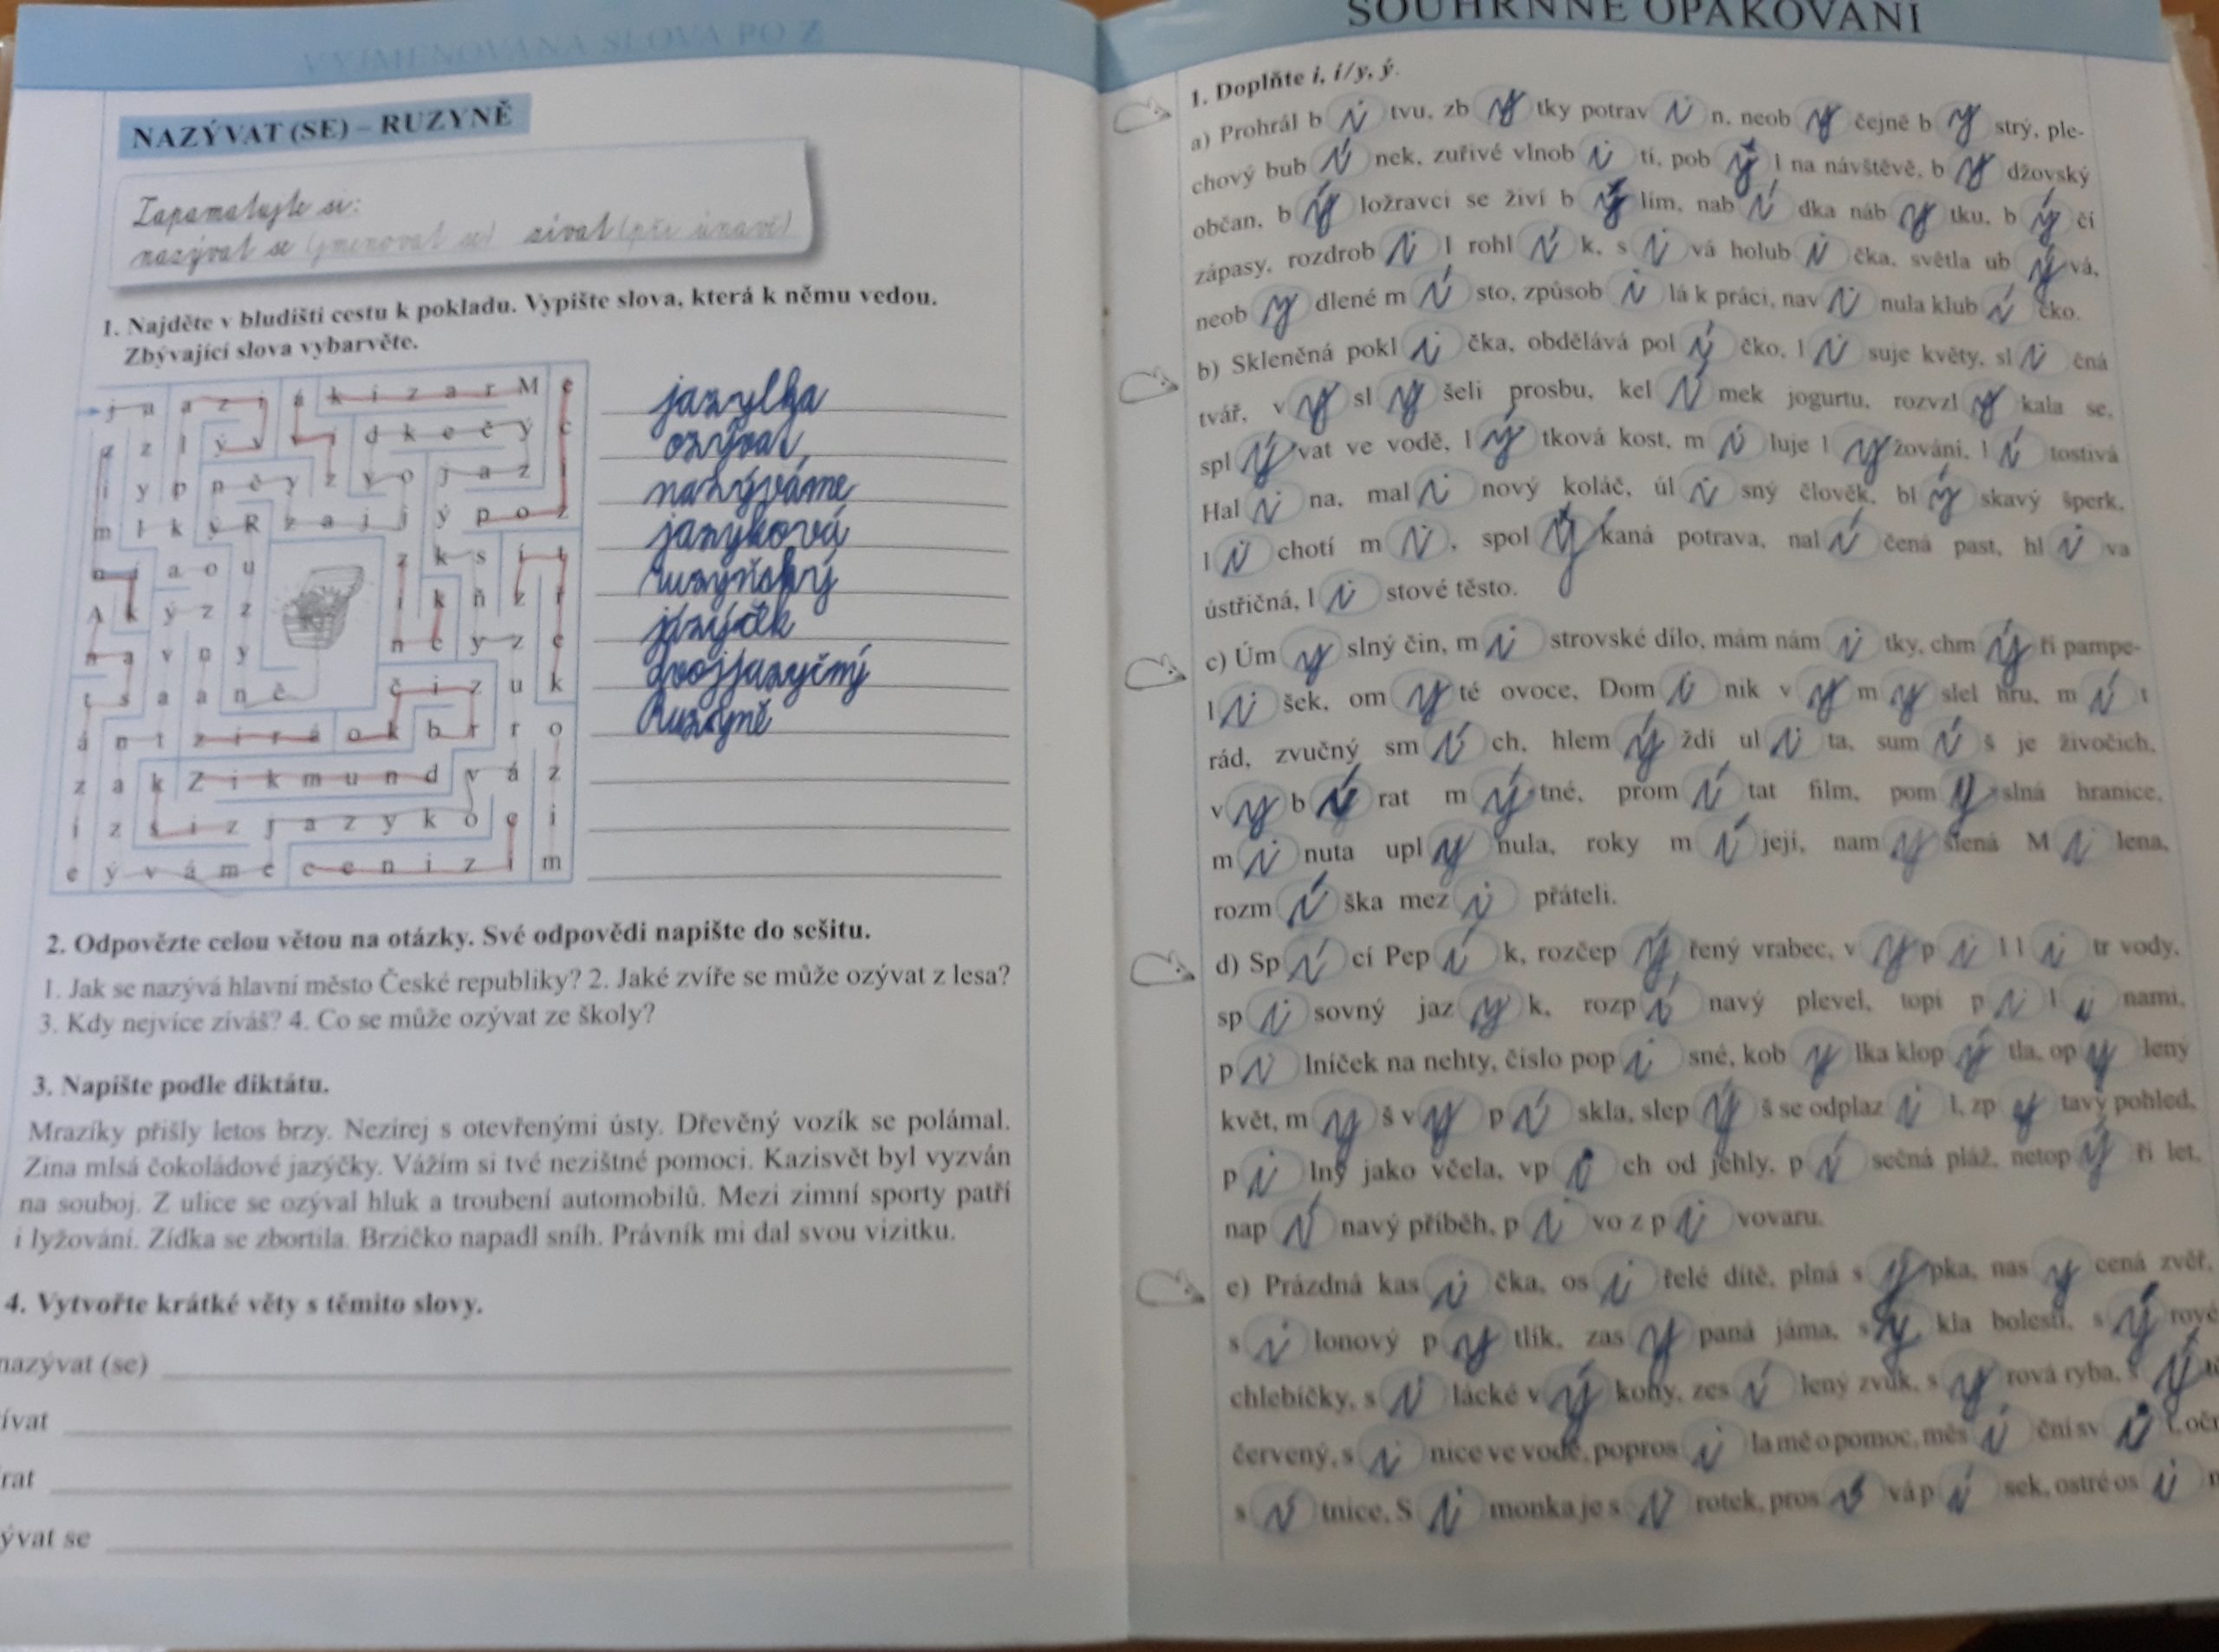 VYJMENOVANÁ SLOVA PO Z
NAZÝVAT (SE) – RUZYNĚ
Zapamatujte si:
nazývat se (jmenovat se) zívat (při únavě)
1. Najděte v bludišti cestu k pokladu. Vypište slova, která k němu vedou.
Zbývající slova vybarvěte.
jazylka
ozývat,
nazýváme
jazyková
ruzyňský
jazýček
dvojjazyčný
Ruzyně
2. Odpovězte celou větou na otázky. Své odpovědi napište do sešitu.
1. Jak se nazývá hlavní město České republiky? 2. Jaké zvíře se může ozývat z lesa?
3. Kdy nejvíce zíváš? 4. Co se může ozývat ze školy?
3. Napište podle diktátu.
Mrazíky přišly letos brzy. Nezírej s otevřenými ústy. Dřevěný vozík se polámal.
Zina mlsá čokoládové jazýčky. Vážím si tvé nezištné pomoci. Kazisvět byl vyzván
na souboj. Z ulice se ozýval hluk a troubení automobilů. Mezi zimní sporty patří
i lyžování. Zídka se zbortila. Brzičko napadl sníh. Právník mi dal svou vizitku.
4. Vytvořte krátké věty s těmito slovy.
nazývat (se)
ívat
rat
ývat se
SOUHRNNÉ OPAKOVÁNÍ
1. Doplňte i, í/y, ý.
a) Prohrál bitvu, zbytky potravin, neobyčejně bystrý, ple-
chový bubínek, zuřivé vlnobití, pobyl na návštěvě, bydžovský
občan, býložravci se živí býlím, nabídka nábytku, býčí
zápasy, rozdrobil rohlík, sivá holubička, světla ubývá,
neobydlené místo, způsobilá k práci, navinula klubíčko.
b) Skleněná poklička, obdělává políčko, lisuje květy, sličná
tvář, vyslyšeli prosbu, kelímek jogurtu, rozvzlykala se,
splývat ve vodě, lýtková kost, miluje lyžování, lítostivá
Halina, malinový koláč, úlisný člověk, blýskavý šperk,
lichotí mi, spolykaná potrava, nalíčená past, hliva
ústřičná, listové těsto.
c) Úmyslný čin, mistrovské dílo, mám námitky, chmýří pampe-
lišek, omyté ovoce, Dominik vymyslel hru, mít
rád, zvučný smích, hlemýždí ulita, sumýš je živočich,
vybírat mýtné, promítat film, pomyslná hranice,
minuta uplynula, roky míjejí, namyšlená Milena,
rozmíška mezi přáteli.
d) Spící Pepík, rozčepýřený vrabec, vypil litr vody,
spisovný jazyk, rozpínavý plevel, topí pilinami,
pilníček na nehty, číslo popisné, kobylka klopýtla, opylený
květ, myš vypískla, slepýš se odplazil, zpytavý pohled,
pilný jako včela, vpich od jehly, písečná pláž, netopýří let,
napínavý příběh, pivo z pivovaru.
e) Prázdná kasička, osiřelé dítě, plná sýpka, nasycená zvěř,
silonový pytlík, zasypaná jáma, sykla bolestí, sýrové
chlebíčky, silácké výkony, zesílený zvuk, syrová ryba,
červený, sinice ve vodě, poprosila mě o pomoc, měsíční svit, oční
sítnice, Simonka je sirotek, prosívá písek, ostré osin